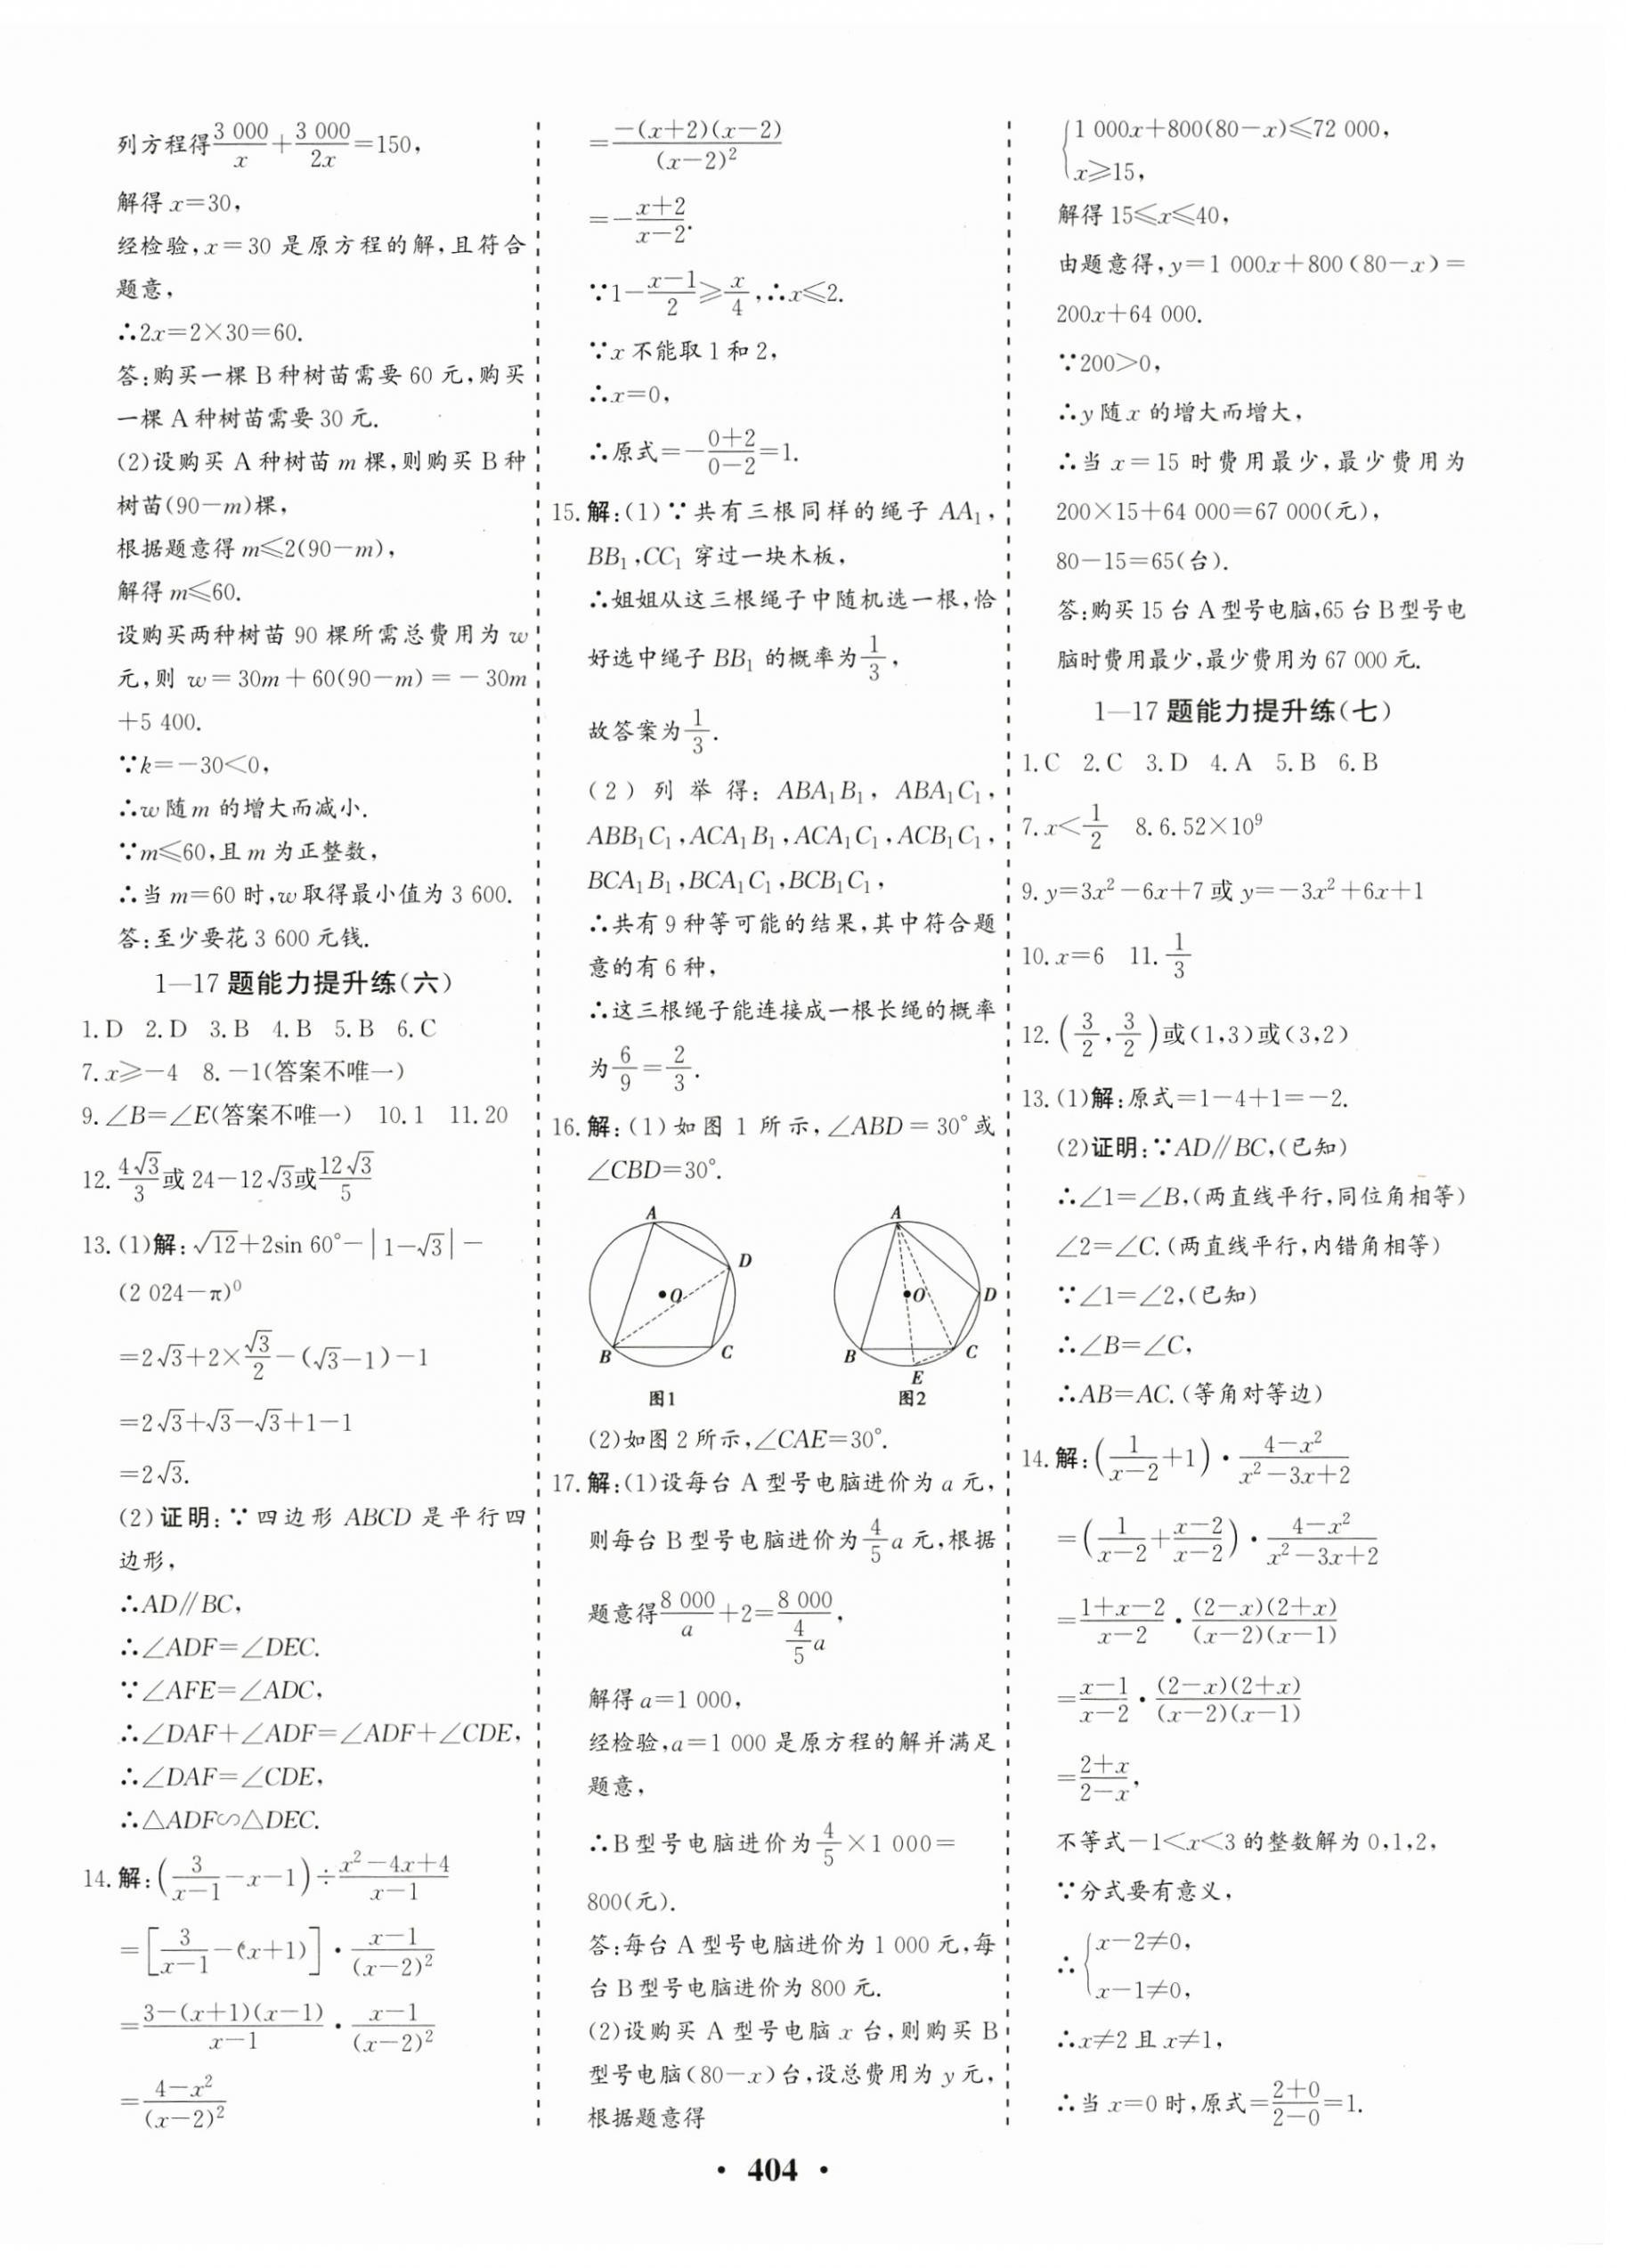 列方程得3 000/x+3 000/2x=150,
解得 x=30,
经检验,x=30 是原方程的解,且符合
题意,
∴2x=2×30=60.
答:购买一棵 B 种树苗需要 60 元,购买
一棵 A 种树苗需要 30 元.
(2)设购买 A 种树苗 m 棵,则购买 B 种
树苗(90-m)棵,
根据题意得 m≤2(90-m),
解得 m≤60.
设购买两种树苗 90 棵所需总费用为 w
元,则 w=30m+60(90-m)=-30m
+5 400.
∵k=-30<0,
∴w 随 m 的增大而减小.
∵m≤60,且 m 为正整数,
∴当 m=60 时,w 取得最小值为 3 600.
答:至少要花 3 600 元钱.
1—17 题能力提升练(六)
1.D 2.D 3.B 4.B 5.B 6.C
7.x≥-4 8.-1(答案不唯一)
9.∠B=∠E(答案不唯一) 10.1 11.20
12.4√3/3或 24-12√3或12√3/5
13.(1)解:√12+2sin 60°-|1-√3|-
(2 024-π)⁰
=2√3+2×√3/2-(√3-1)-1
=2√3+√3-√3+1-1
=2√3.
(2)证明:∵四边形 ABCD 是平行四
边形,
∴AD∥BC,
∴∠ADF=∠DEC.
∵∠AFE=∠ADC,
∴∠DAF+∠ADF=∠ADF+∠CDE,
∴∠DAF=∠CDE,
∴△ADF∽△DEC.
14.解:(3/(x-1)-x-1)÷(x²-4x+4)/(x-1)
=[3/(x-1)-(x+1)]·(x-1)/(x-2)²
=(3-(x+1)(x-1))/(x-1)·(x-1)/(x-2)²
=(4-x²)/(x-2)²
=-(x+2)(x-2)/(x-2)²
=-(x+2)/(x-2).
∵1-(x-1)/2≥x/4,∴x≤2.
∵x 不能取 1 和 2,
∴x=0,
∴原式=-(0+2)/(0-2)=1.
15.解:(1)∵共有三根同样的绳子 AA₁,
BB₁,CC₁ 穿过一块木板,
∴姐姐从这三根绳子中随机选一根,恰
好选中绳子 BB₁ 的概率为1/3,
故答案为1/3.
(2)列举得:ABA₁B₁,ABA₁C₁,
ABB₁C₁,ACA₁B₁,ACA₁C₁,ACB₁C₁,
BCA₁B₁,BCA₁C₁,BCB₁C₁,
∴共有 9 种等可能的结果,其中符合题
意的有 6 种,
∴这三根绳子能连接成一根长绳的概率
为6/9=2/3.
16.解:(1)如图 1 所示,∠ABD=30°或
∠CBD=30°.
A
D
O
B
C
图1
A
O
D
B
C
E
图2
(2)如图 2 所示,∠CAE=30°.
17.解:(1)设每台 A 型号电脑进价为 a 元,
则每台 B 型号电脑进价为4/5a 元,根据
题意得8 000/a+2=8 000/(4/5a),
解得 a=1 000,
经检验,a=1 000 是原方程的解并满足
题意,
∴B 型号电脑进价为4/5×1 000=
800(元).
答:每台 A 型号电脑进价为 1 000 元,每
台 B 型号电脑进价为 800 元.
(2)设购买 A 型号电脑 x 台,则购买 B
型号电脑(80-x)台,设总费用为 y 元,
根据题意得
{1 000x+800(80-x)≤72 000,
x≥15,
解得 15≤x≤40,
由题意得,y=1 000x+800(80-x)=
200x+64 000.
∵200>0,
∴y 随 x 的增大而增大,
∴当 x=15 时费用最少,最少费用为
200×15+64 000=67 000(元),
80-15=65(台).
答:购买 15 台 A 型号电脑,65 台 B 型号电
脑时费用最少,最少费用为 67 000 元.
1—17 题能力提升练(七)
1.C 2.C 3.D 4.A 5.B 6.B
7.x<1/2 8.6.52×10⁹
9.y=3x²-6x+7 或 y=-3x²+6x+1
10.x=6 11.1/3
12.(3/2,3/2)或(1,3)或(3,2)
13.(1)解:原式=1-4+1=-2.
(2)证明:∵AD∥BC,(已知)
∴∠1=∠B,(两直线平行,同位角相等)
∠2=∠C.(两直线平行,内错角相等)
∵∠1=∠2,(已知)
∴∠B=∠C,
∴AB=AC.(等角对等边)
14.解:(1/(x-2)+1)·(4-x²)/(x²-3x+2)
=(1/(x-2)+(x-2)/(x-2))·(4-x²)/(x²-3x+2)
=(1+x-2)/(x-2)·(2-x)(2+x)/(x-2)(x-1)
=(x-1)/(x-2)·(2-x)(2+x)/(x-2)(x-1)
=(2+x)/(2-x),
不等式-1<x<3 的整数解为 0,1,2,
∵分式要有意义,
∴{x-2≠0,
x-1≠0,
∴x≠2 且 x≠1,
∴当 x=0 时,原式=(2+0)/(2-0)=1.
· 404 ·